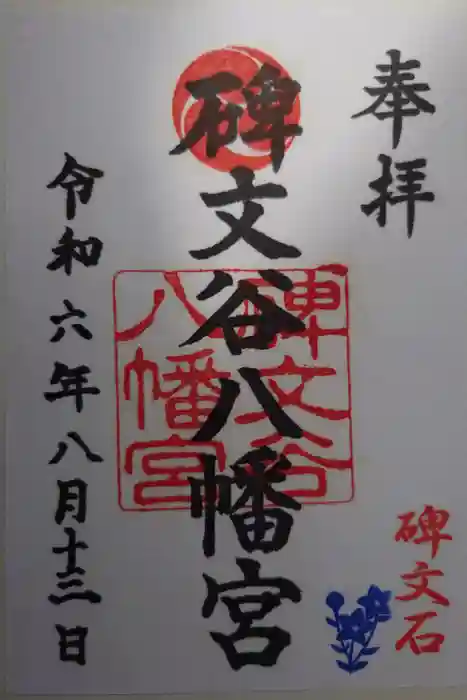 奉拝
碑文谷八幡宮
碑文谷
八幡宮
令和六年八月十三日
碑文石